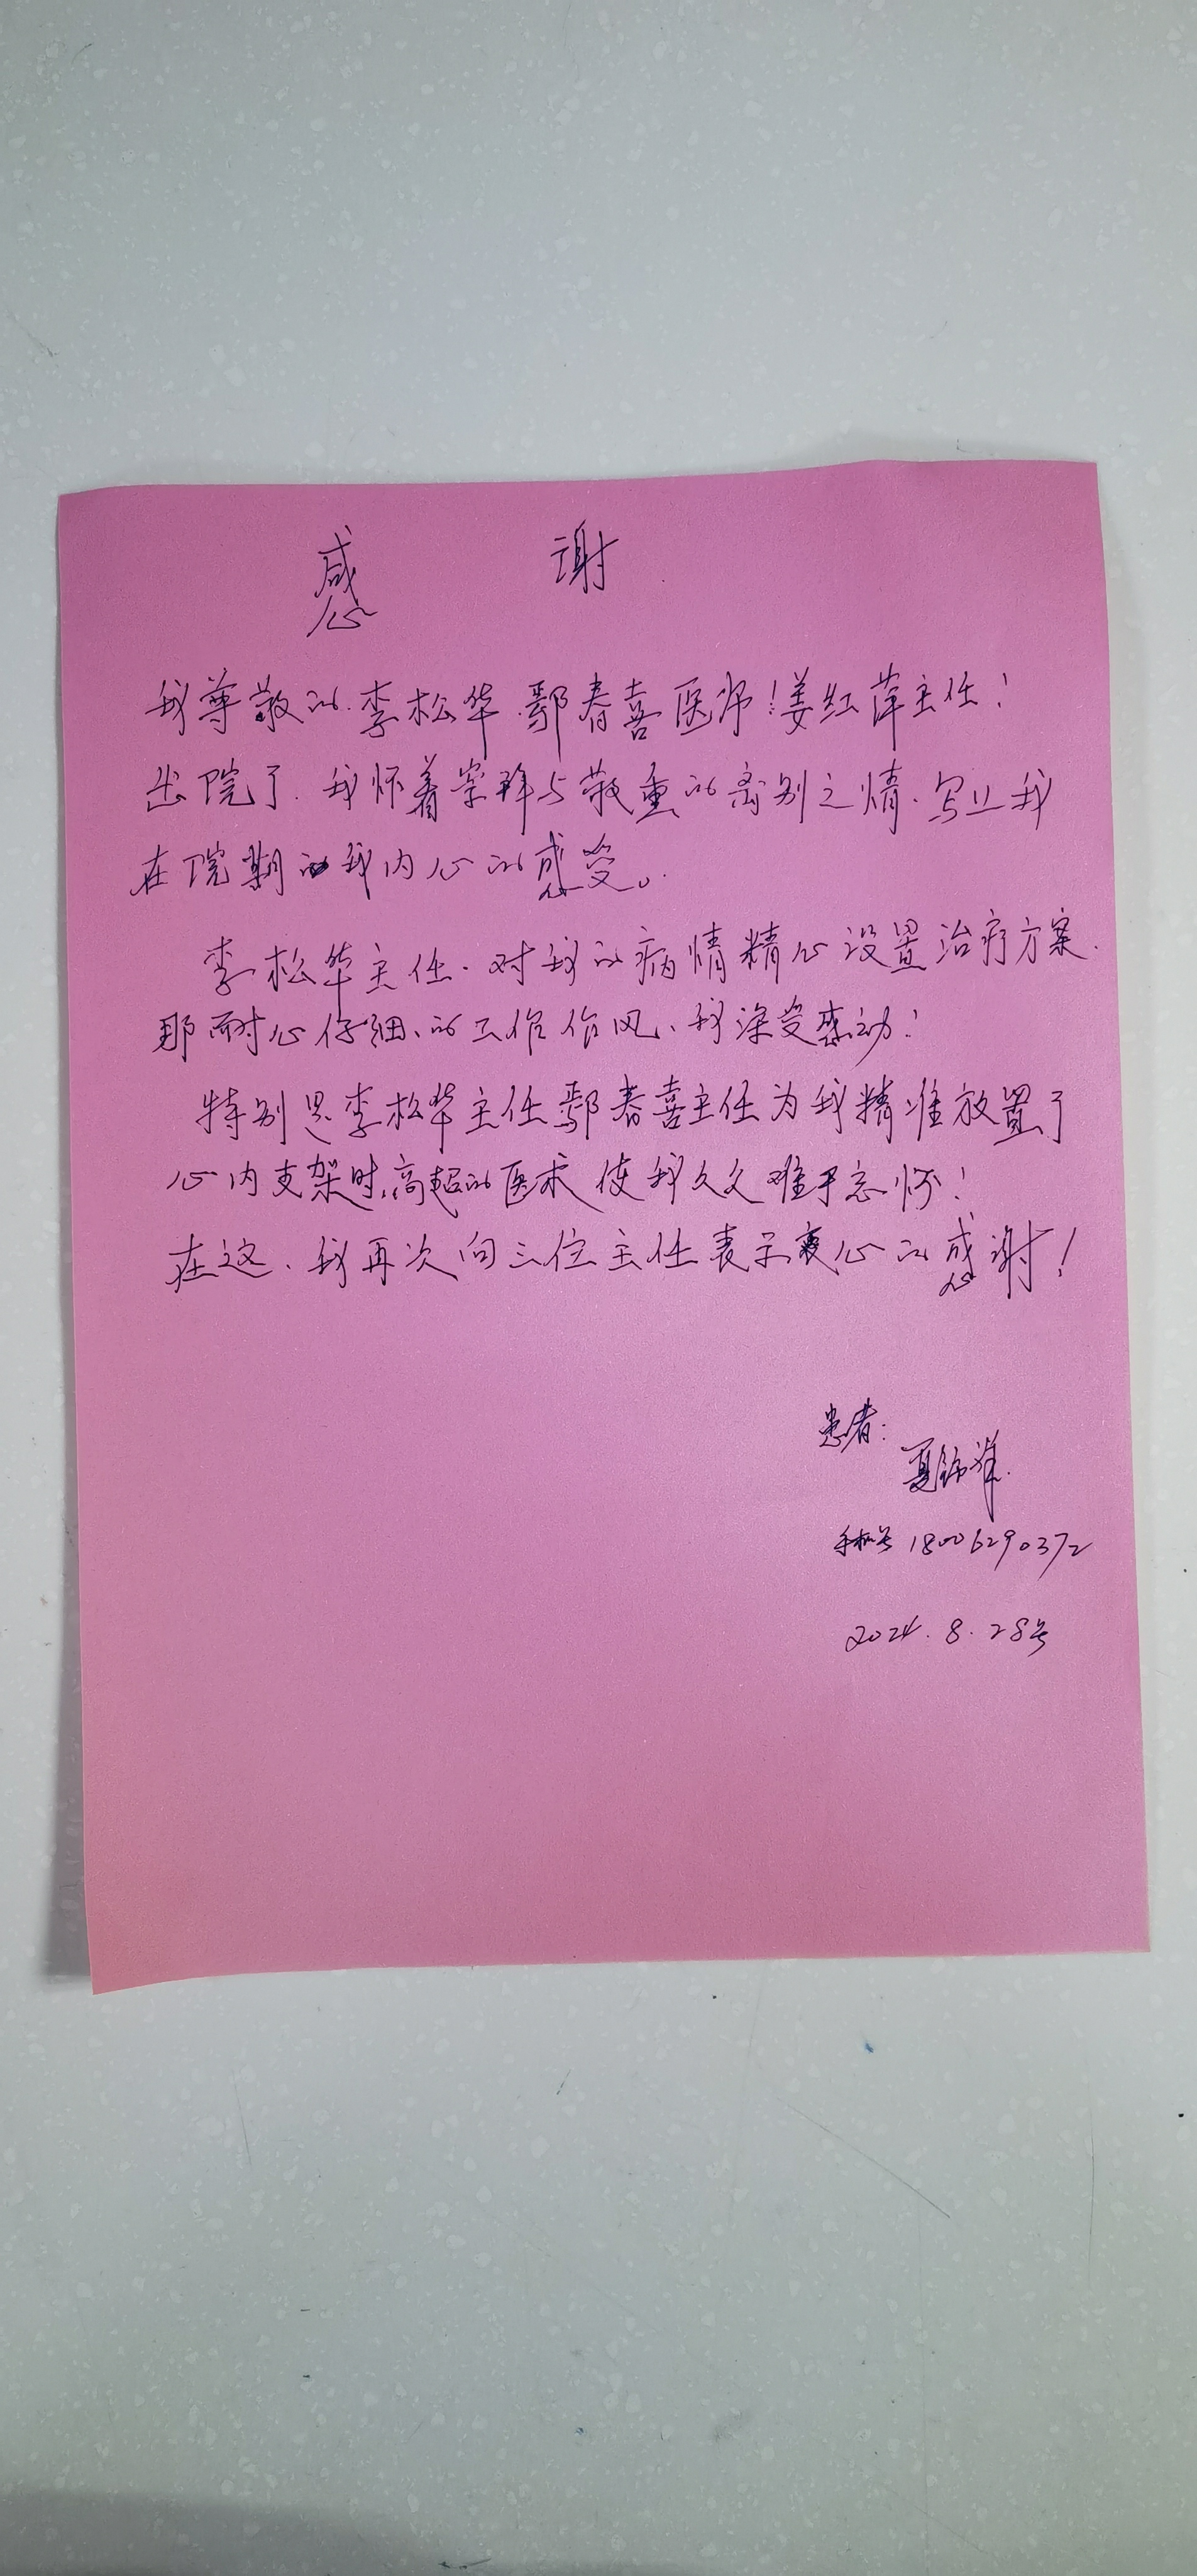 感 谢
我尊敬的.李松华.鄢春喜医师!姜红萍主任!
出院了.我怀着崇拜与敬重的离别之情.写上我
在院期的我内心的感受。
李松华主任.对我的病情精心设置治疗方案.
那耐心仔细、的工作作风、我深受感动!
特别是李松华主任鄢春喜主任为我精准放置了
心内支架时,高超的医术使我久久难于忘怀!
在这、我再次向三位主任表示衷心的感谢!
患者:
夏锦祥
手机号 18006290372
2024.8.28号